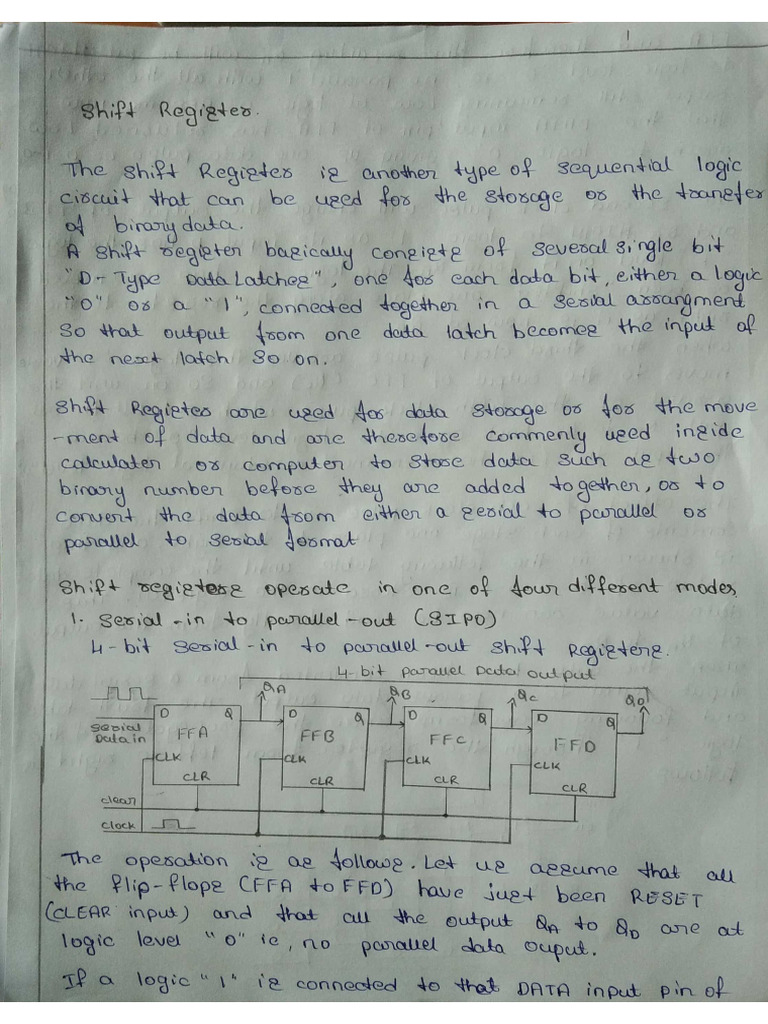 1
Shift Register.
The shift Register is another type of sequential logic
circuit that can be used for the storage or the transfer
of binary data.
A shift register basically consists of several single bit
"D-Type Data Latches", one for each data bit, either a logic
"0" or a "1", connected together in a serial arrangment
So that output from one data latch becomes the input of
the next latch so on.
Shift Register are used for data storage or for the move
-ment of data and are therefore commenly used inside
calculater or computer to store data such as two
binary number before they are added together, or to
convert the data from either a serial to parallel or
parallel to serial format
Shift registers operate in one of four different modes,
1. Serial-in to parallel-out (SIPO)
4-bit serial-in to parallel-out shift Registers.
4-bit parallel Data output
QA QB QC QD
D Q D Q D Q D Q
Serial
Data in
FFA FFB FFC FFD
CLK CLK CLK CLK
CLR CLR CLR CLR
clear
clock
The operation is as follows. Let us assume that all
the flip-flops (FFA to FFD) have just been RESET
(CLEAR input) and that all the output QA to QD are at
logic level "0" ie, no parallel data ouput.
If a logic "1" is connected to that DATA input pin of